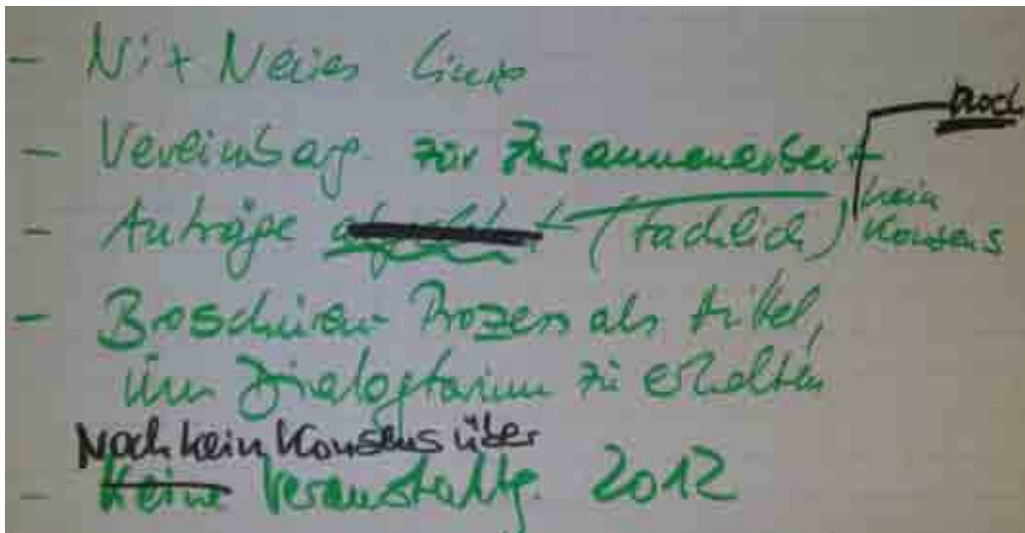 - Nix Neues
- Vereinbarg. zur Zusammenarbeit
noch
kein
Konsens
- Anträge (fachlich)
- Broschüren Prozess als Artikel,
um Dialogforum zu erhalten
Noch kein Konsens über
- Keine Veranstaltg. 2012